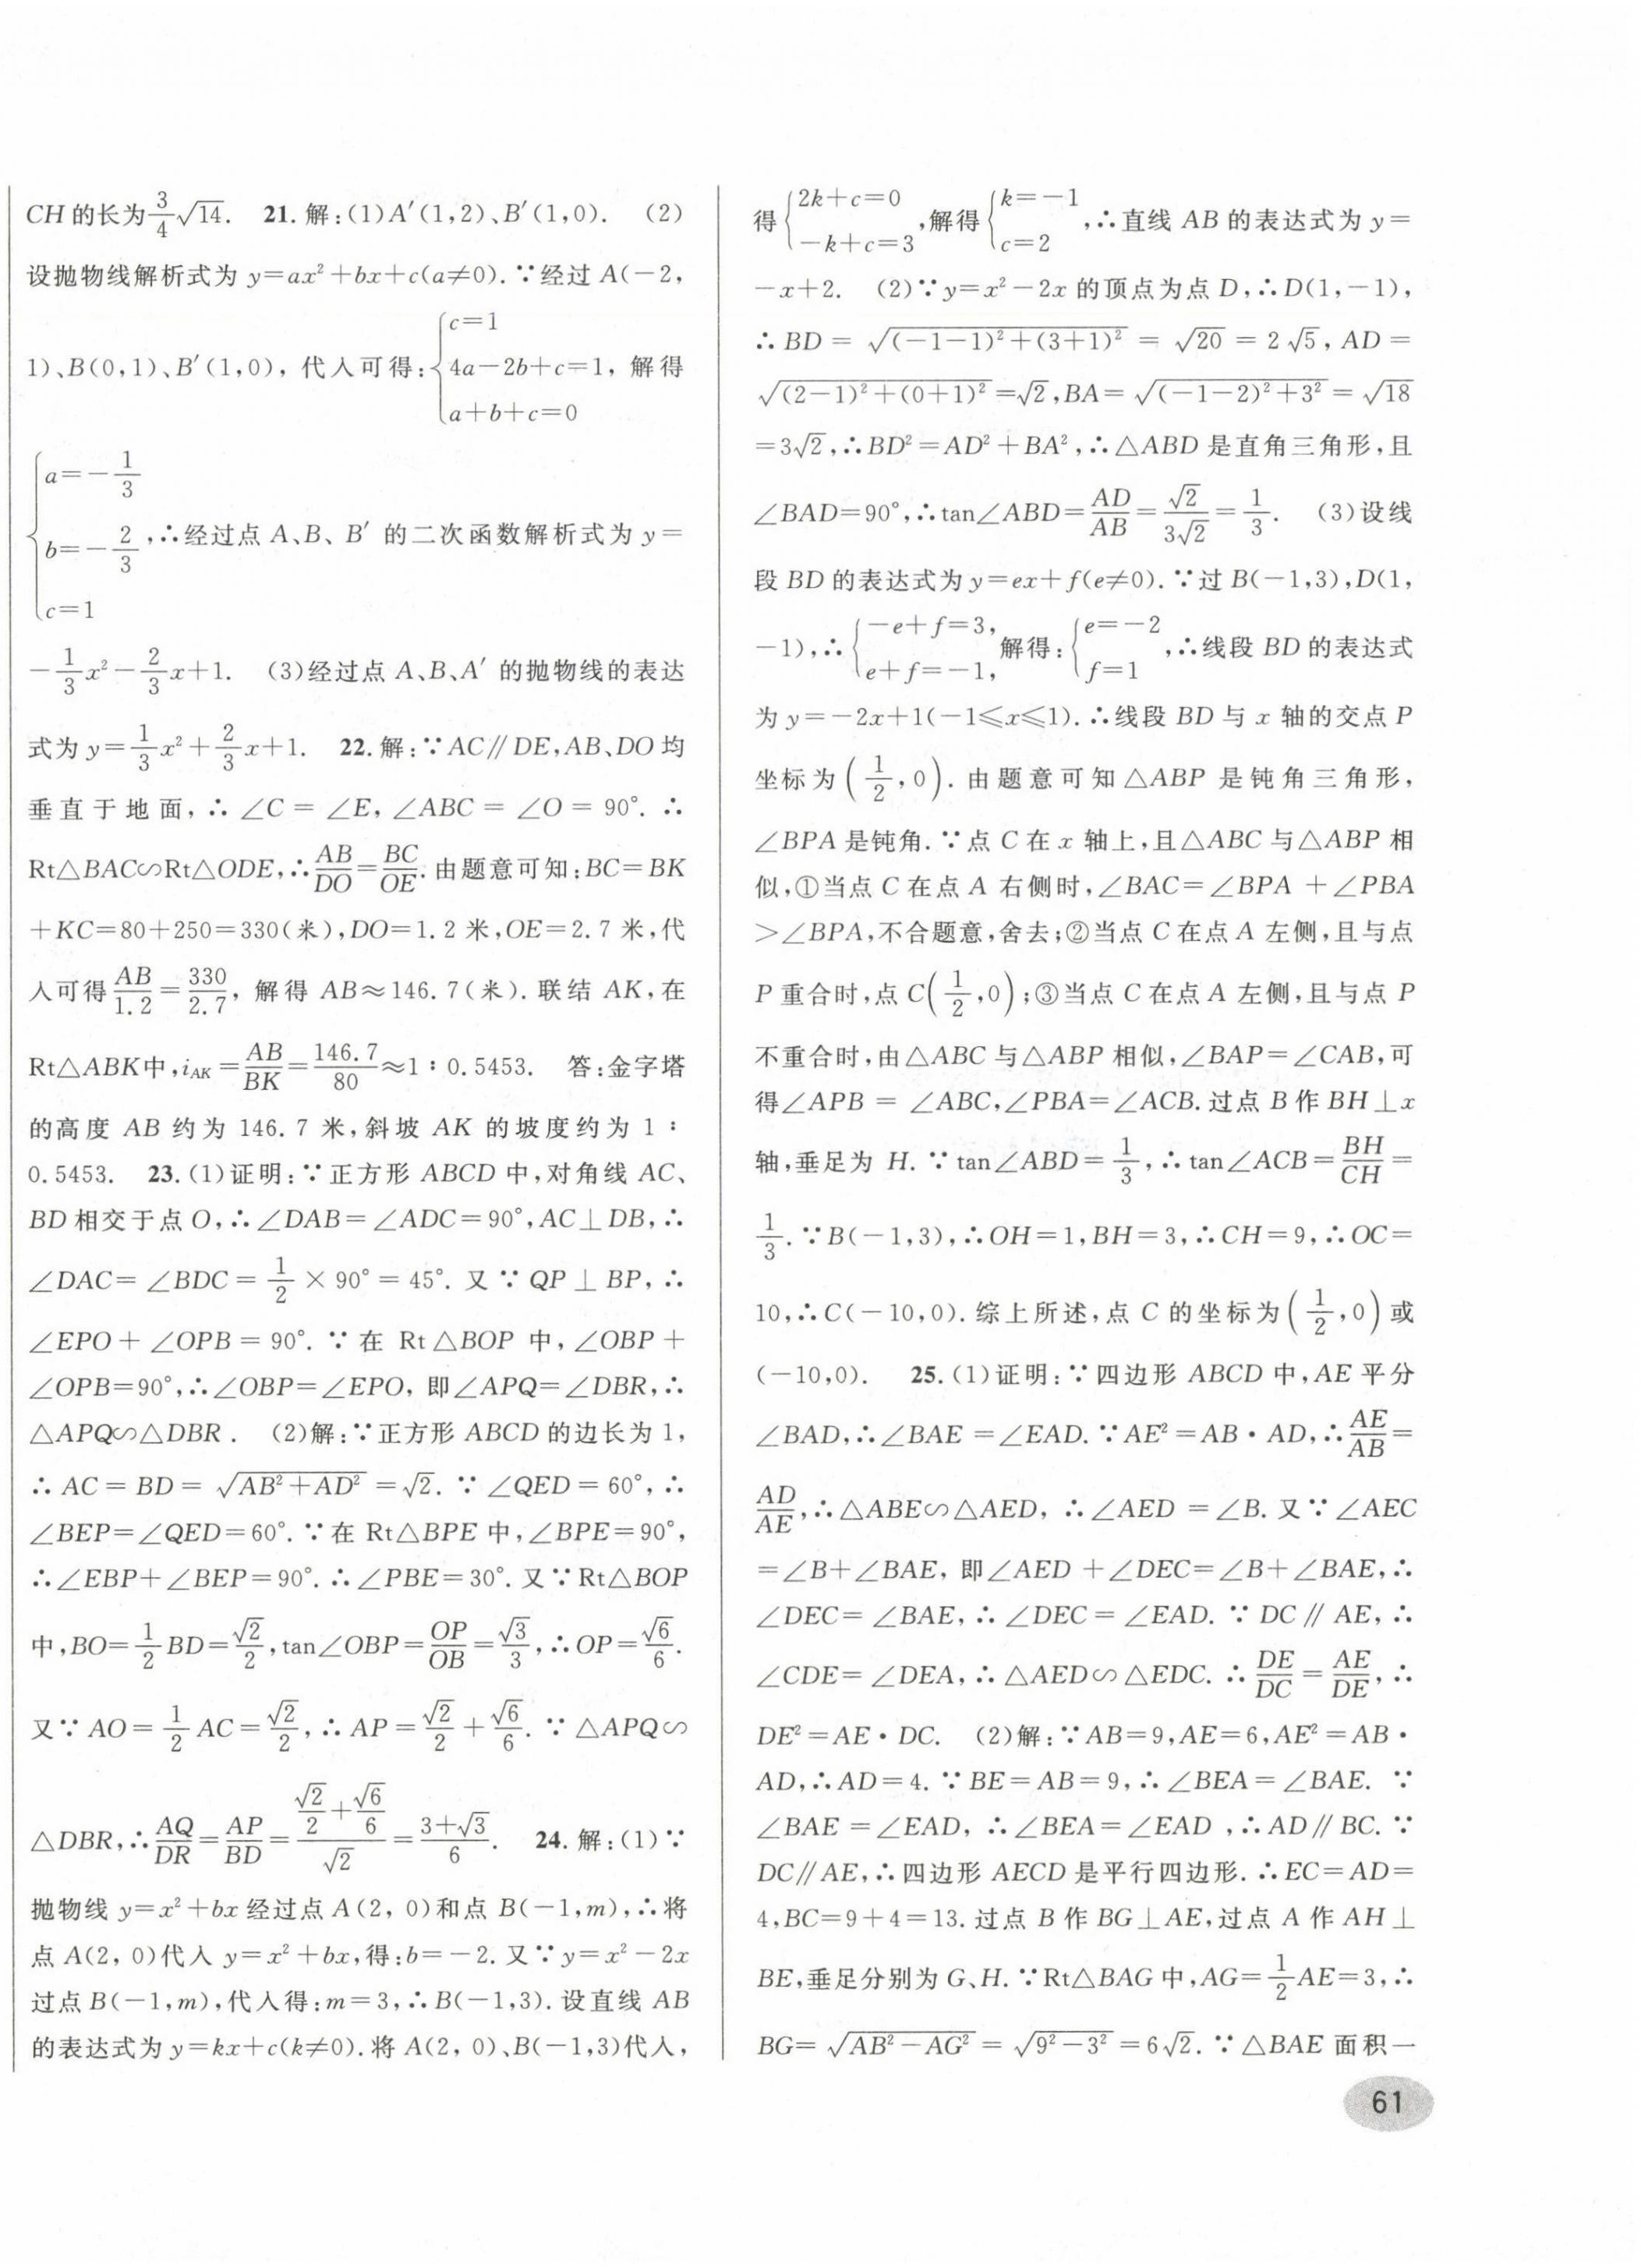 CH的长为$\frac{3}{4}\sqrt{14}$. 21.解:(1)A′(1,2)、B′(1,0). (2)
设抛物线解析式为 y=ax²+bx+c(a≠0).∵经过 A(-2,
1)、B(0,1)、B′(1,0), 代入可得:$\begin{cases}c=1\\4a-2b+c=1\\a+b+c=0\end{cases}$, 解得
$\begin{cases}a=-\frac{1}{3}\\b=-\frac{2}{3}\\c=1\end{cases}$,∴经过点 A、B、B′ 的二次函数解析式为 y=
$-\frac{1}{3}x²-\frac{2}{3}x+1$. (3)经过点 A、B、A′ 的抛物线的表达
式为 $y=\frac{1}{3}x²+\frac{2}{3}x+1$. 22.解:∵AC∥DE,AB、DO均
垂直于地面,∴∠C=∠E,∠ABC=∠O=90°.∴
Rt△BAC∽Rt△ODE,∴$\frac{AB}{DO}=\frac{BC}{OE}$.由题意可知:BC=BK
+KC=80+250=330(米),DO=1.2米,OE=2.7米,代
入可得$\frac{AB}{1.2}=\frac{330}{2.7}$, 解得 AB≈146.7(米).联结 AK,在
Rt△ABK中,$i_{AK}=\frac{AB}{BK}=\frac{146.7}{80}$≈1∶0.5453. 答:金字塔
的高度 AB 约为 146.7 米,斜坡 AK 的坡度约为 1∶
0.5453. 23.(1)证明:∵正方形 ABCD 中,对角线 AC、
BD相交于点O,∴∠DAB=∠ADC=90°,AC⊥DB,∴
∠DAC=∠BDC=$\frac{1}{2}$×90°=45°.又∵QP⊥BP,∴
∠EPO+∠OPB=90°.∵在 Rt△BOP 中,∠OBP+
∠OPB=90°,∴∠OBP=∠EPO, 即∠APQ=∠DBR,∴
△APQ∽△DBR. (2)解:∵正方形 ABCD 的边长为 1,
∴AC=BD=$\sqrt{AB²+AD²}=\sqrt{2}$.∵∠QED=60°,∴
∠BEP=∠QED=60°.∵在 Rt△BPE 中,∠BPE=90°,
∴∠EBP+∠BEP=90°.∴∠PBE=30°.又∵Rt△BOP
中,BO=$\frac{1}{2}$BD=$\frac{\sqrt{2}}{2}$,tan∠OBP=$\frac{OP}{OB}=\frac{\sqrt{3}}{3}$,∴OP=$\frac{\sqrt{6}}{6}$.
又∵AO=$\frac{1}{2}$AC=$\frac{\sqrt{2}}{2}$,∴AP=$\frac{\sqrt{2}}{2}+\frac{\sqrt{6}}{6}$.∵△APQ∽
△DBR,∴$\frac{AQ}{DR}=\frac{AP}{BD}=\frac{\frac{\sqrt{2}}{2}+\frac{\sqrt{6}}{6}}{\sqrt{2}}=\frac{3+\sqrt{3}}{6}$. 24.解:(1)∵
抛物线 y=x²+bx 经过点 A(2,0)和点 B(-1,m),∴将
点 A(2,0)代入 y=x²+bx,得:b=-2.又∵y=x²-2x
过点 B(-1,m),代入得:m=3,∴B(-1,3).设直线 AB
的表达式为 y=kx+c(k≠0).将 A(2,0)、B(-1,3)代入,
得$\begin{cases}2k+c=0\\-k+c=3\end{cases}$,解得$\begin{cases}k=-1\\c=2\end{cases}$,∴直线 AB 的表达式为 y=
-x+2. (2)∵y=x²-2x的顶点为点 D,∴D(1,-1),
∴BD=$\sqrt{(-1-1)²+(3+1)²}=\sqrt{20}=2\sqrt{5}$,AD=
$\sqrt{(2-1)²+(0+1)²}=\sqrt{2}$,BA=$\sqrt{(-1-2)²+3²}=\sqrt{18}$
=$3\sqrt{2}$,∴BD²=AD²+BA²,∴△ABD 是直角三角形,且
∠BAD=90°,∴tan∠ABD=$\frac{AD}{AB}=\frac{\sqrt{2}}{3\sqrt{2}}=\frac{1}{3}$. (3)设线
段 BD的表达式为 y=ex+f(e≠0).∵过 B(-1,3),D(1,
-1),∴$\begin{cases}-e+f=3,\\e+f=-1,\end{cases}$解得:$\begin{cases}e=-2\\f=1\end{cases}$,∴线段 BD 的表达式
为 y=-2x+1(-1≤x≤1).∴线段 BD 与 x 轴的交点 P
坐标为$(\frac{1}{2},0)$.由题意可知△ABP 是钝角三角形,
∠BPA是钝角.∵点 C在 x 轴上,且△ABC 与△ABP 相
似,①当点 C 在点 A 右侧时,∠BAC=∠BPA+∠PBA
>∠BPA,不合题意,舍去;②当点 C 在点 A 左侧,且与点
P重合时,点 C$(\frac{1}{2},0)$;③当点 C 在点 A 左侧,且与点 P
不重合时,由△ABC 与△ABP 相似,∠BAP=∠CAB,可
得∠APB=∠ABC,∠PBA=∠ACB.过点 B作 BH⊥x
轴,垂足为 H.∵tan∠ABD=$\frac{1}{3}$,∴tan∠ACB=$\frac{BH}{CH}$=
$\frac{1}{3}$.∵B(-1,3),∴OH=1,BH=3,∴CH=9,∴OC=
10,∴C(-10,0).综上所述,点 C 的坐标为$(\frac{1}{2},0)$或
(-10,0). 25.(1)证明:∵四边形 ABCD 中,AE平分
∠BAD,∴∠BAE=∠EAD.∵AE²=AB·AD,∴$\frac{AE}{AB}$=
$\frac{AD}{AE}$,∴△ABE∽△AED,∴∠AED=∠B.又∵∠AEC
=∠B+∠BAE, 即∠AED+∠DEC=∠B+∠BAE,∴
∠DEC=∠BAE,∴∠DEC=∠EAD.∵DC∥AE,∴
∠CDE=∠DEA,∴△AED∽△EDC.∴$\frac{DE}{DC}=\frac{AE}{DE}$,∴
DE²=AE·DC. (2)解:∵AB=9,AE=6,AE²=AB·
AD,∴AD=4.∵BE=AB=9,∴∠BEA=∠BAE.∵
∠BAE=∠EAD,∴∠BEA=∠EAD,∴AD∥BC.∵
DC∥AE,∴四边形 AECD 是平行四边形.∴EC=AD=
4,BC=9+4=13.过点 B 作 BG⊥AE,过点 A 作 AH⊥
BE,垂足分别为 G、H.∵Rt△BAG中,AG=$\frac{1}{2}$AE=3,∴
BG=$\sqrt{AB²-AG²}=\sqrt{9²-3²}=6\sqrt{2}$.∵△BAE 面积一
61